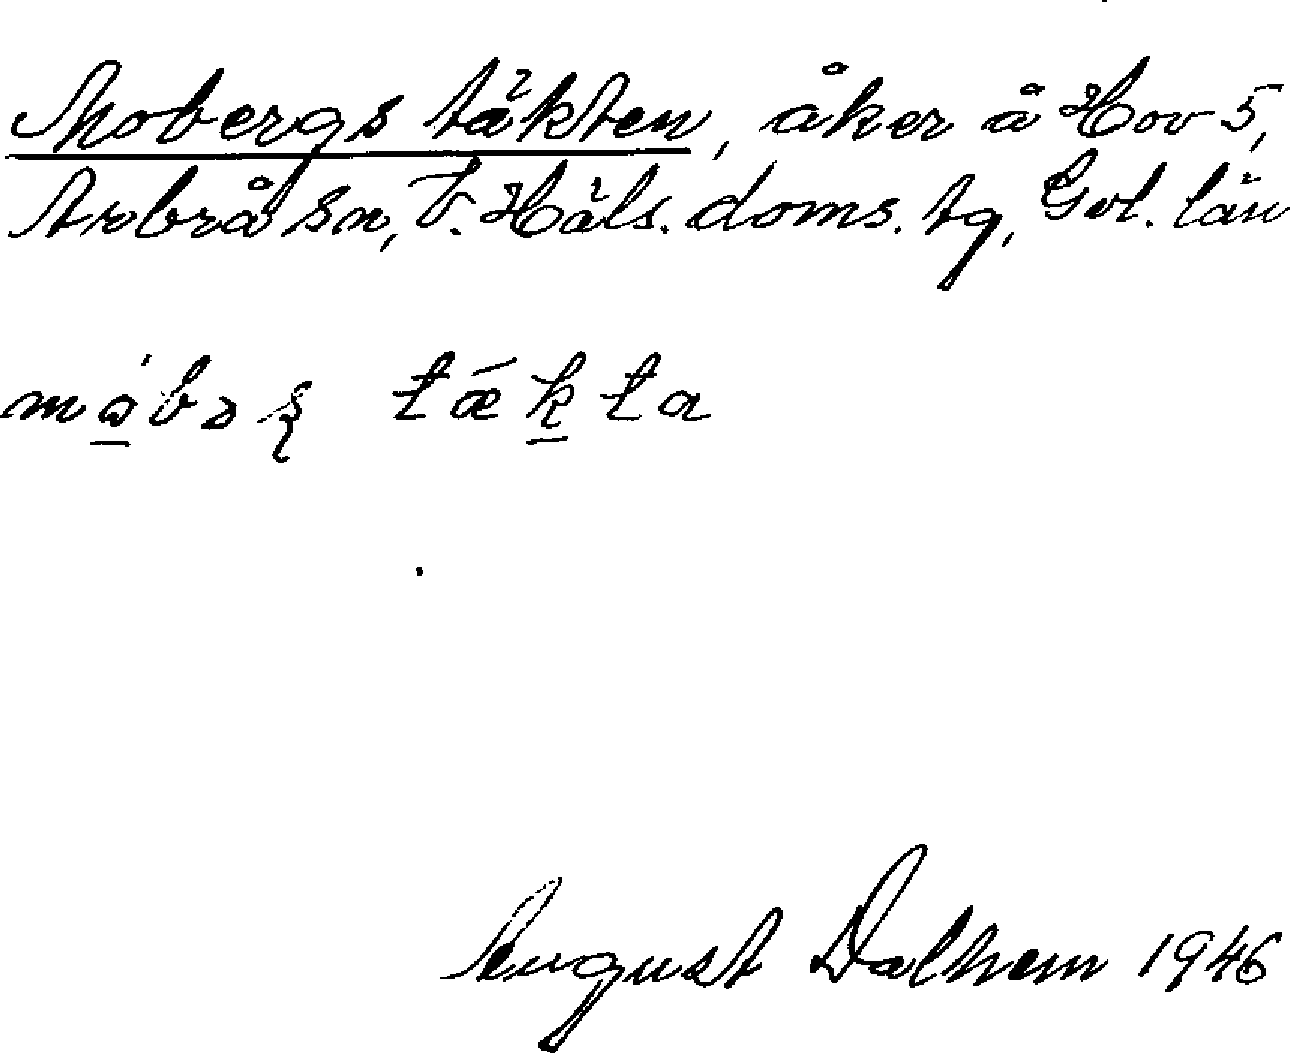 Mobergs täkten, åker å Hov 5,
Arbrå sn, V. Häls. doms. tg, Gvl. län
August Dalhem 1946